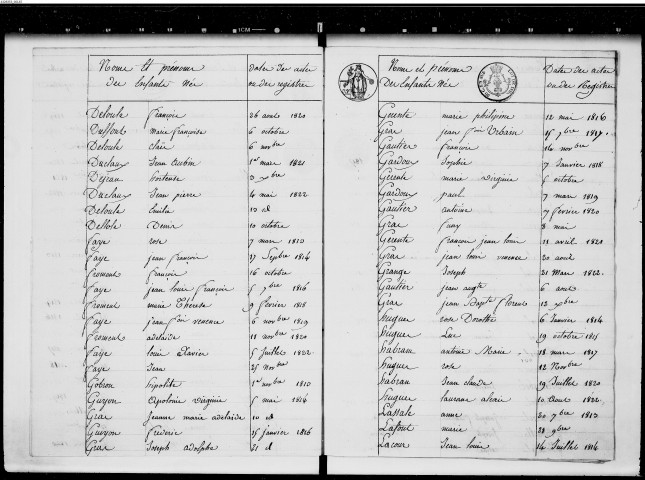 Noms Et prénoms Date des actes
Des Enfants Nés ou des registres
Deloule françois 26 aout 1820
Duffour marie françoise 6 octobre
Deloule claire 6 novbre
Duclaux Jean Aubin 1er mars 1821
Déjean hortense 9 xbre
Duclaux Jean pierre 4 mai 1822
Deloule Emilie 10 id
Dellole Denis 10 octobre
faye rose 7 mars 1810
faye jean françois 17 Septbre 1814
froment françois 16 octobre
faye jean louis françois 5 7bre 1816
froment marie Thérèse 9 février 1818
faye jean fois venence 6 novbre 1819
froment adelaide 11 novbre 1820
faye louis Xavier 5 Juillet 1822
faye Jean 25 novbre
Gobron hipolite 1er novbre 1810
Guyon Apolonie virginie 5 mai 1814
Gras jeanne marie adelaide 10 id
Guyon frederic 25 janvier 1816
Gras Joseph adolphe 21 d
Noms et prénoms Date des actes
Des Enfants Nés ou des Registres
Gerente marie philipine 12 mai 1816
Gras jean fois Urbain 15 7bre 1817
Gautier françois 14 novbre
Gardoux Sophie 7 Janvier 1818
Gerente marie virginie 5 octobre
Gardoux paul 7 mars 1819
Gautier antoine 7 février 1820
Gras fany 8 mai
Gerente françois jean louis 11 avril 1821
Gras jean louis venence 20 aout
Grange Joseph 21 Mars 1822
Gautier jean augte 6 aout
Gras jean Bapte florent 12 xbre
huguet rose Dorothé 6 Janvier 1814
huguet Luc 19 octobre 1815
habram antoine Marie 18 mars 1817
huguet rose 12 Novbre
habran Jean claude 19 Juillet 1820
huguet Laurane alexie 10 Aout 1822
Lassale anne 20 7bre 1813
Lafont marie 28 9bre
Lacour Jean louis 14 Juillet 1814